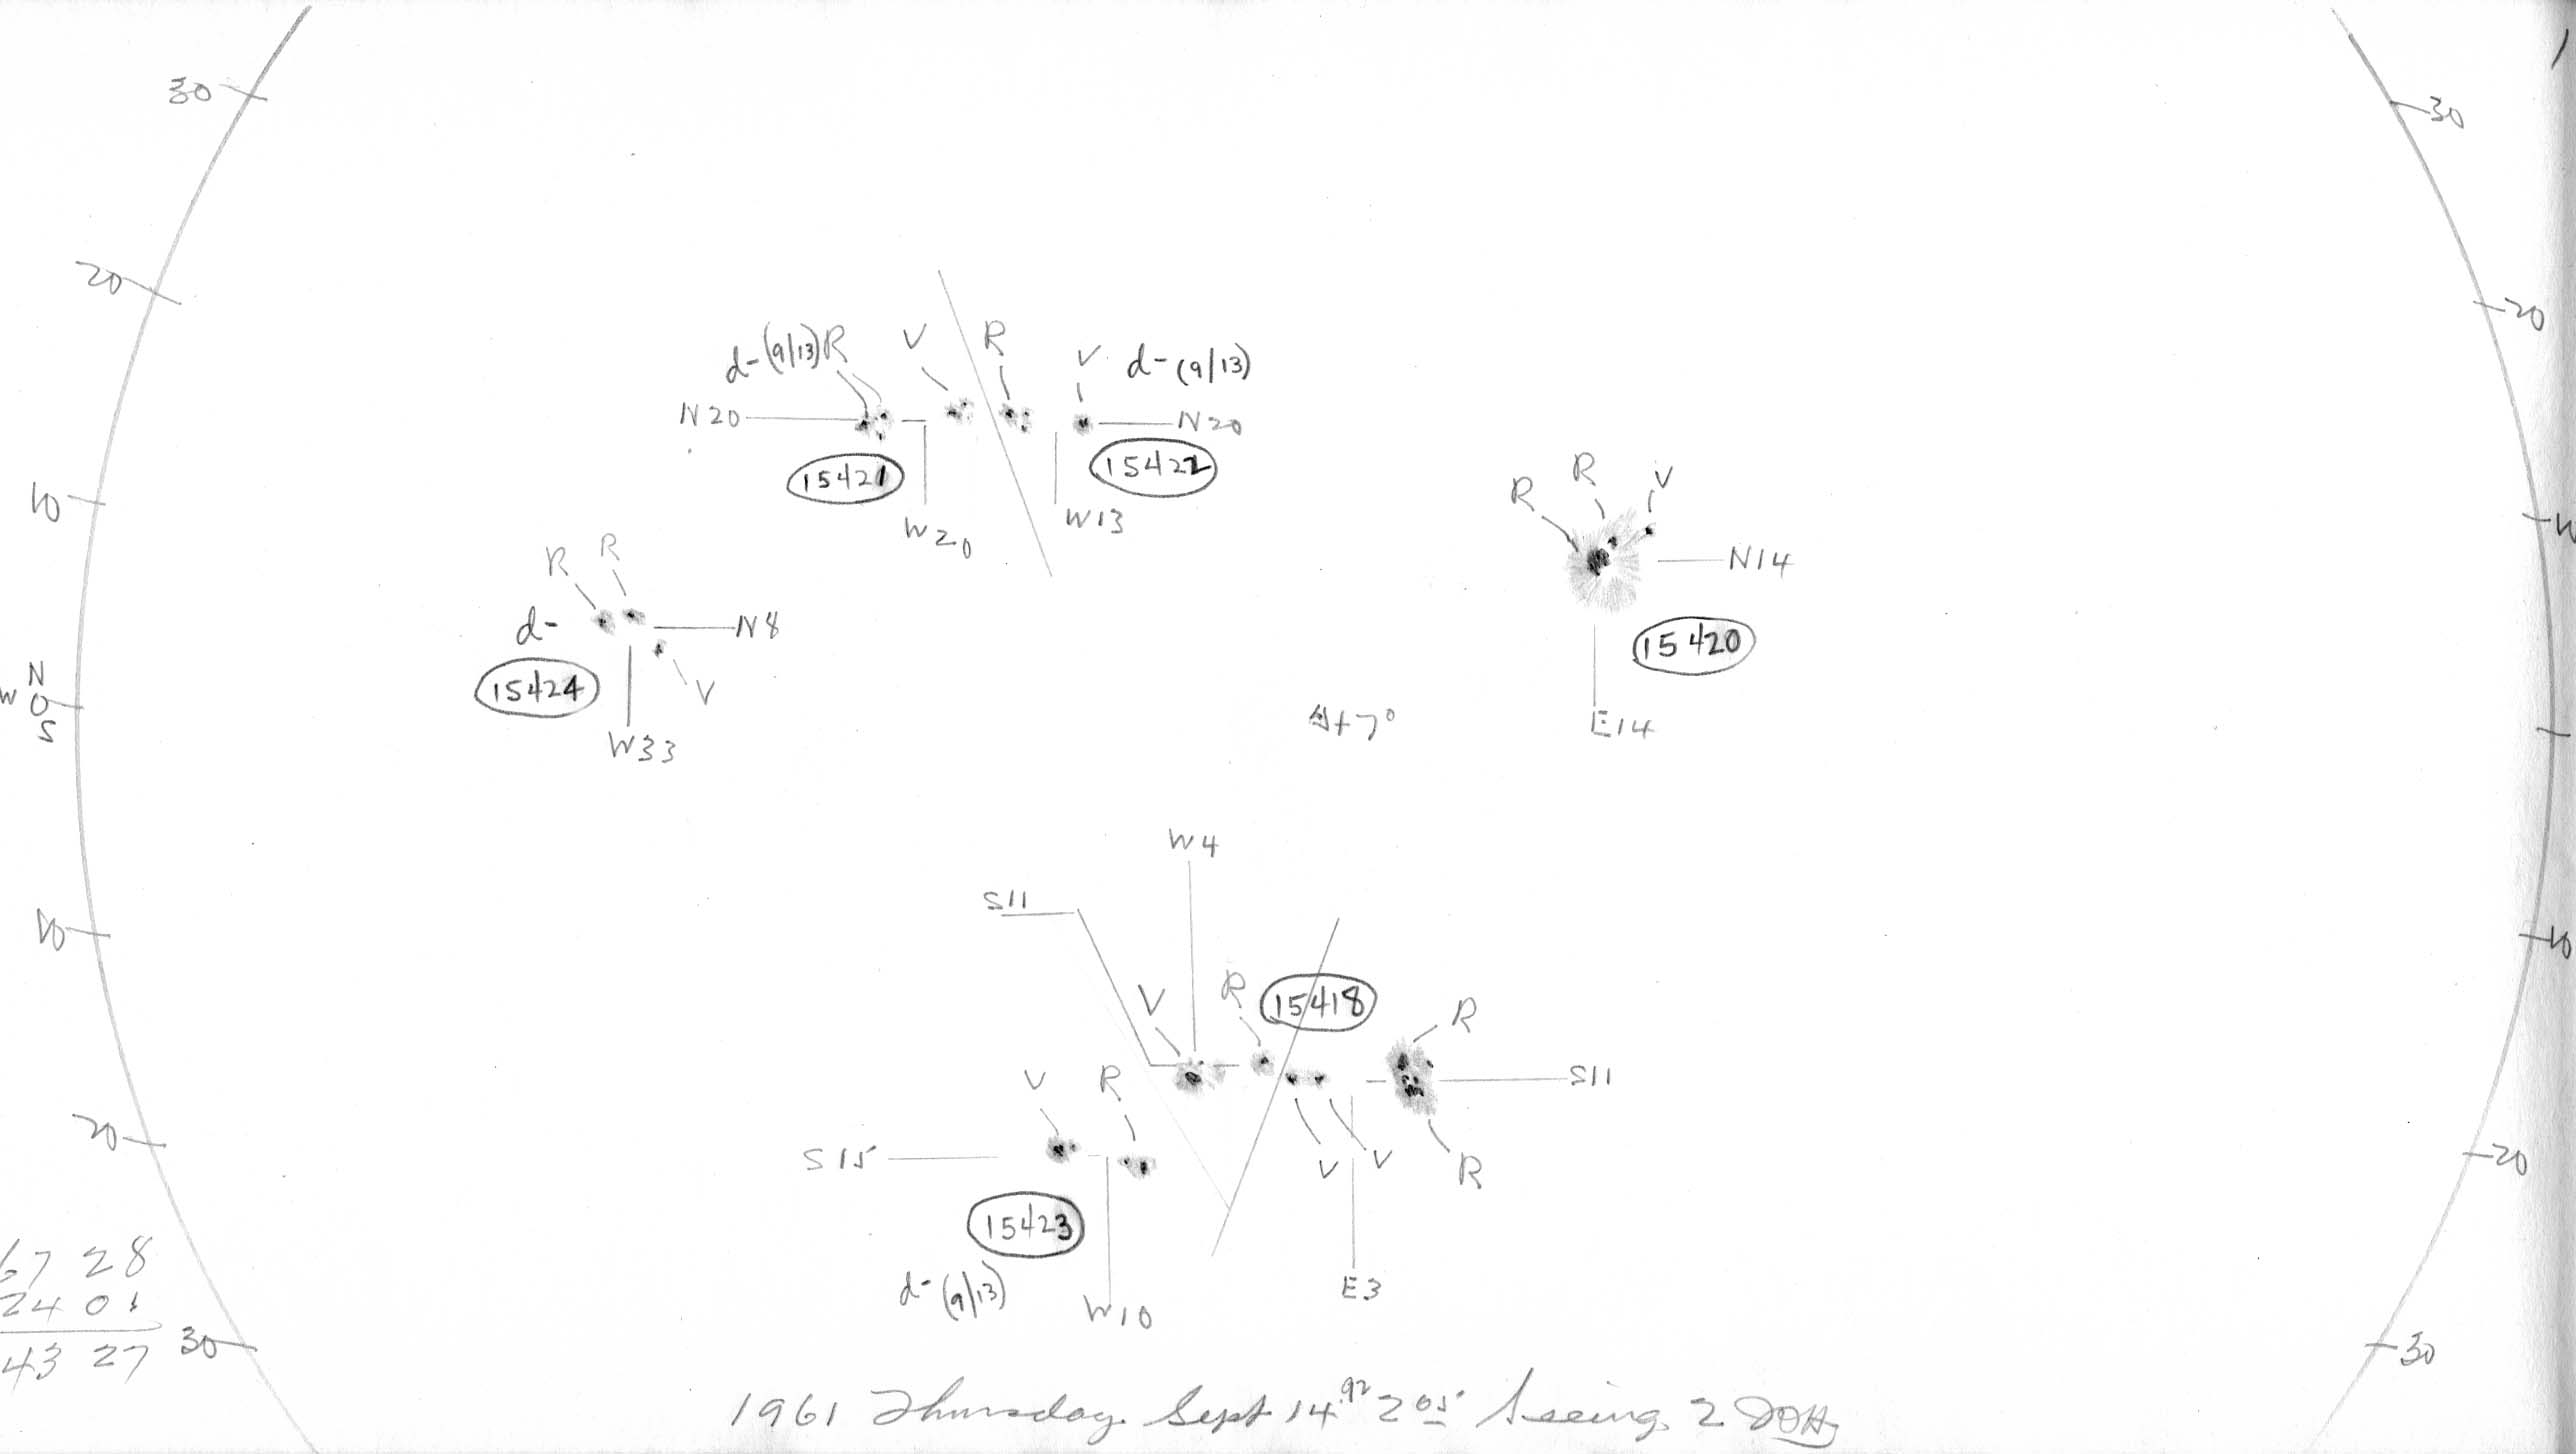 30
30
20
20
d-(9/13) R V R V d-(9/13)
N20 N20
15421 15422
W20 W13
10
R R V
N14
15420
E14
R R
d- N8
15424 V
W33
N
W O
S
∆+7°
W4
S11
10
10
V R 15418 R
V R
S11
S15
V V R
20
20
15423
d-(9/13) W10 E3
67 28
24 01
43 27
30
30
1961 Thursday Sept 14.92 2 05 Seeing 2